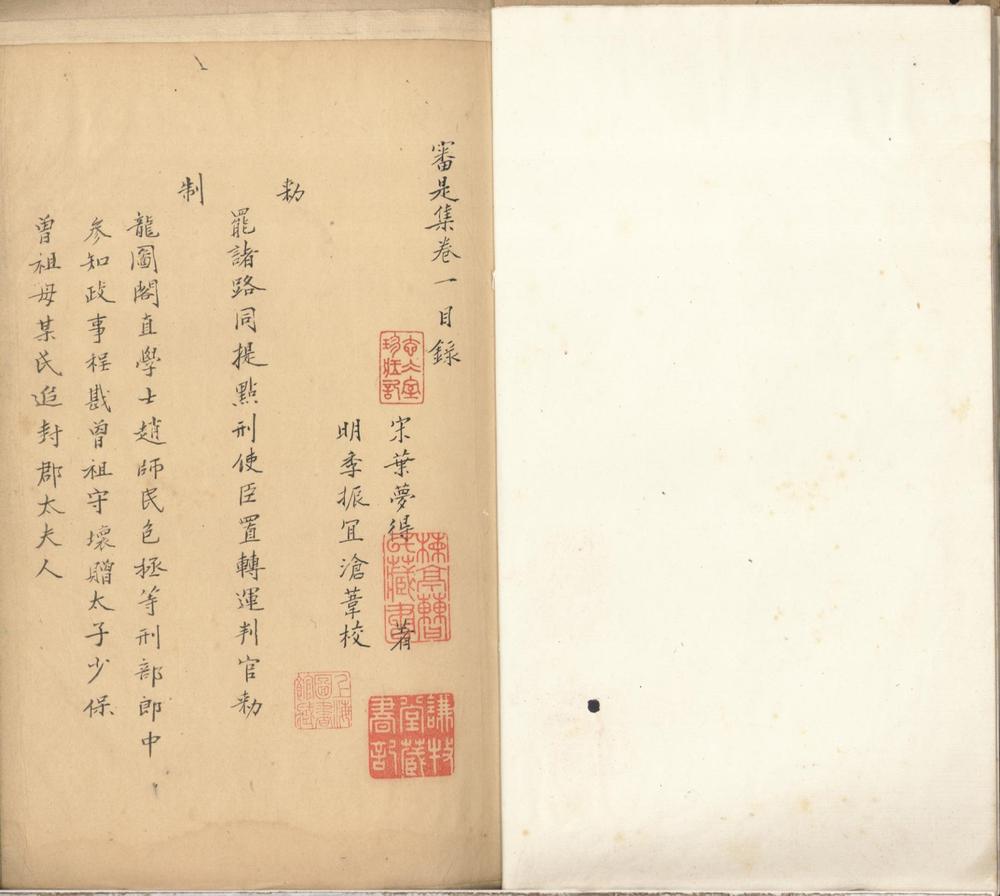 審是集卷一目錄
宋葉夢得著
明季振宜滄葦校
勅
罷諸路同提點刑使臣置轉運判官勅
制
龍圖閣直學士趙師民包拯等刑部郎中
參知政事程戡曾祖守壞贈太子少保
曾祖母某氏追封郡太夫人
謙牧堂藏書記
上海圖書館藏